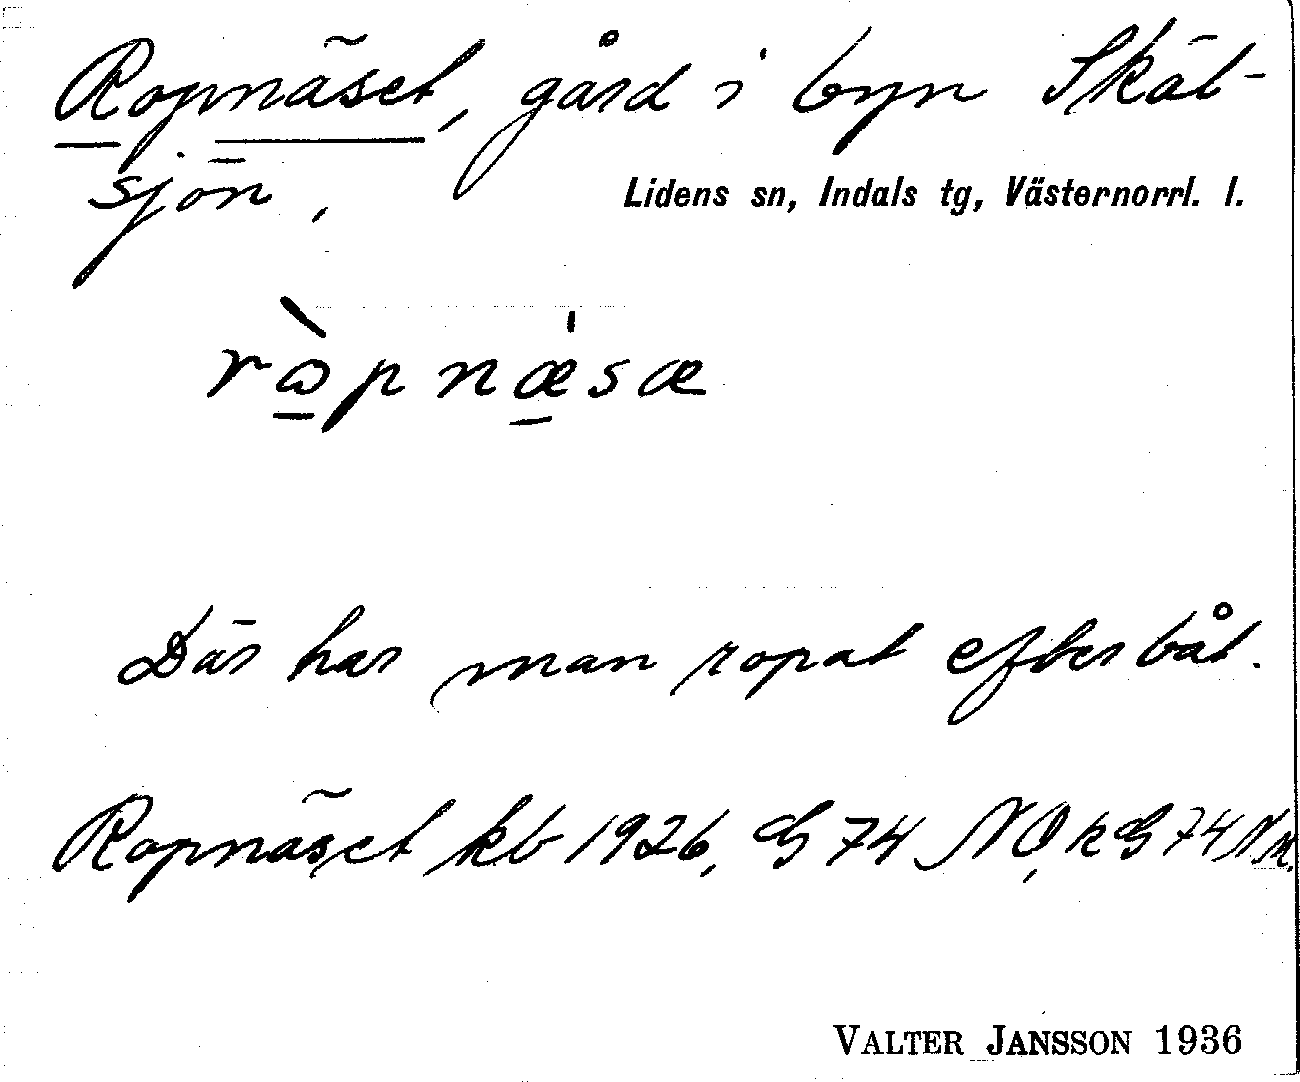 Ropnäset, gård i byn Skät-
sjön,
Lidens sn, Indals tg, Västernorrl. l.
rɷ̀pnæ̍sæ
Där har man ropat efter båt.
Ropnäset kb 1926, G 74 NO, k G 74 Nm.
VALTER JANSSON 1936